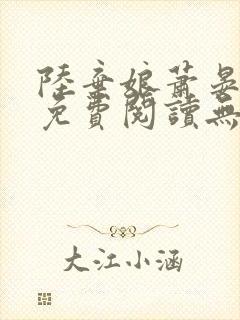 陸棄娘蕭晏
免費閱讀無
大江小涵